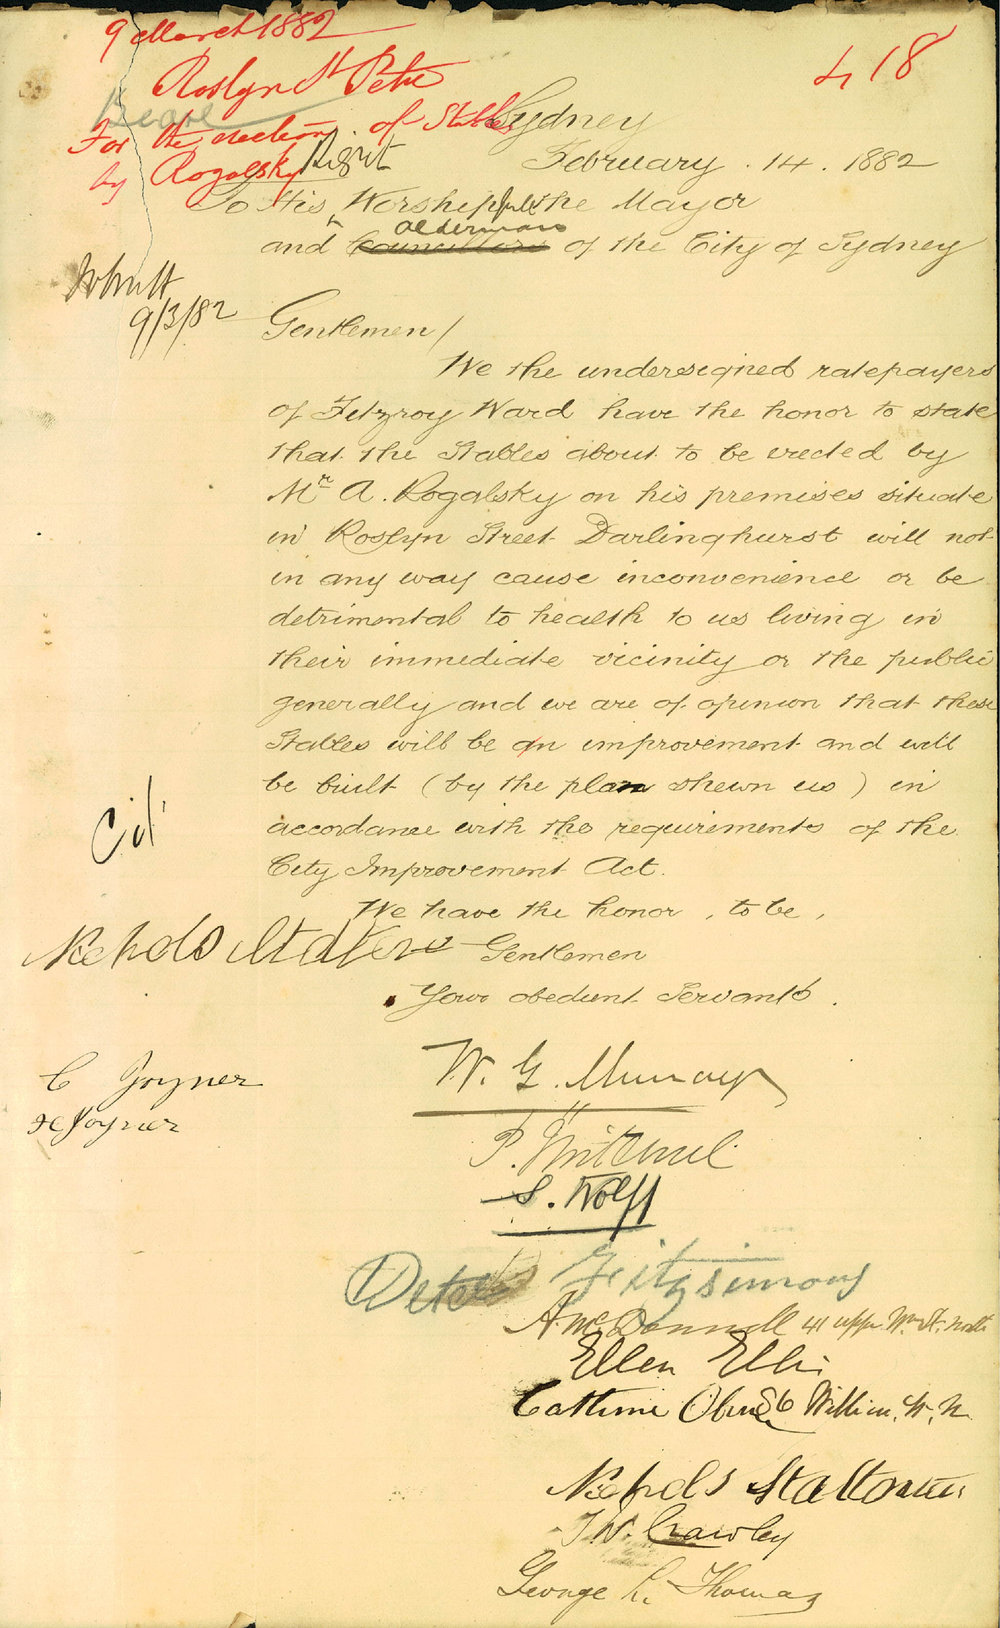 9 March 1882
418
Roslyn St Petn
For the erection of Stables
by Rogalsky
Sydney
February . 14 . 1882
To His Right Worshipful the Mayor
and Councillors aldermans of the City of Sydney
9/3/82
Gentlemen/
We the undersigned ratepayers
of Fitzroy Ward have the honor to state
that the Stables about to be erected by
Mr A. Rogalsky on his premises situate
in Roslyn Street Darlinghurst will not
in any way cause inconvenience or be
detrimental to health to us living in
their immediate vicinity or the public
generally and we are of opinion that these
Stables will be an improvement and will
be built (by the plan shewn us) in
accordance with the requirements of the
City Improvement Act.
We have the honor, to be,
Gentlemen
Your obedient Servants.
W. G. Murray
C Joyner
H Joyner
P. Mitchell
S. Wolff
Peter Fitzsimons
A. McDonnell 41 uppr Wm St. north
Ellen Ellis
Catherine 86 William. St. N.
Nicholds
J. W. Crawley
George R. Thomas